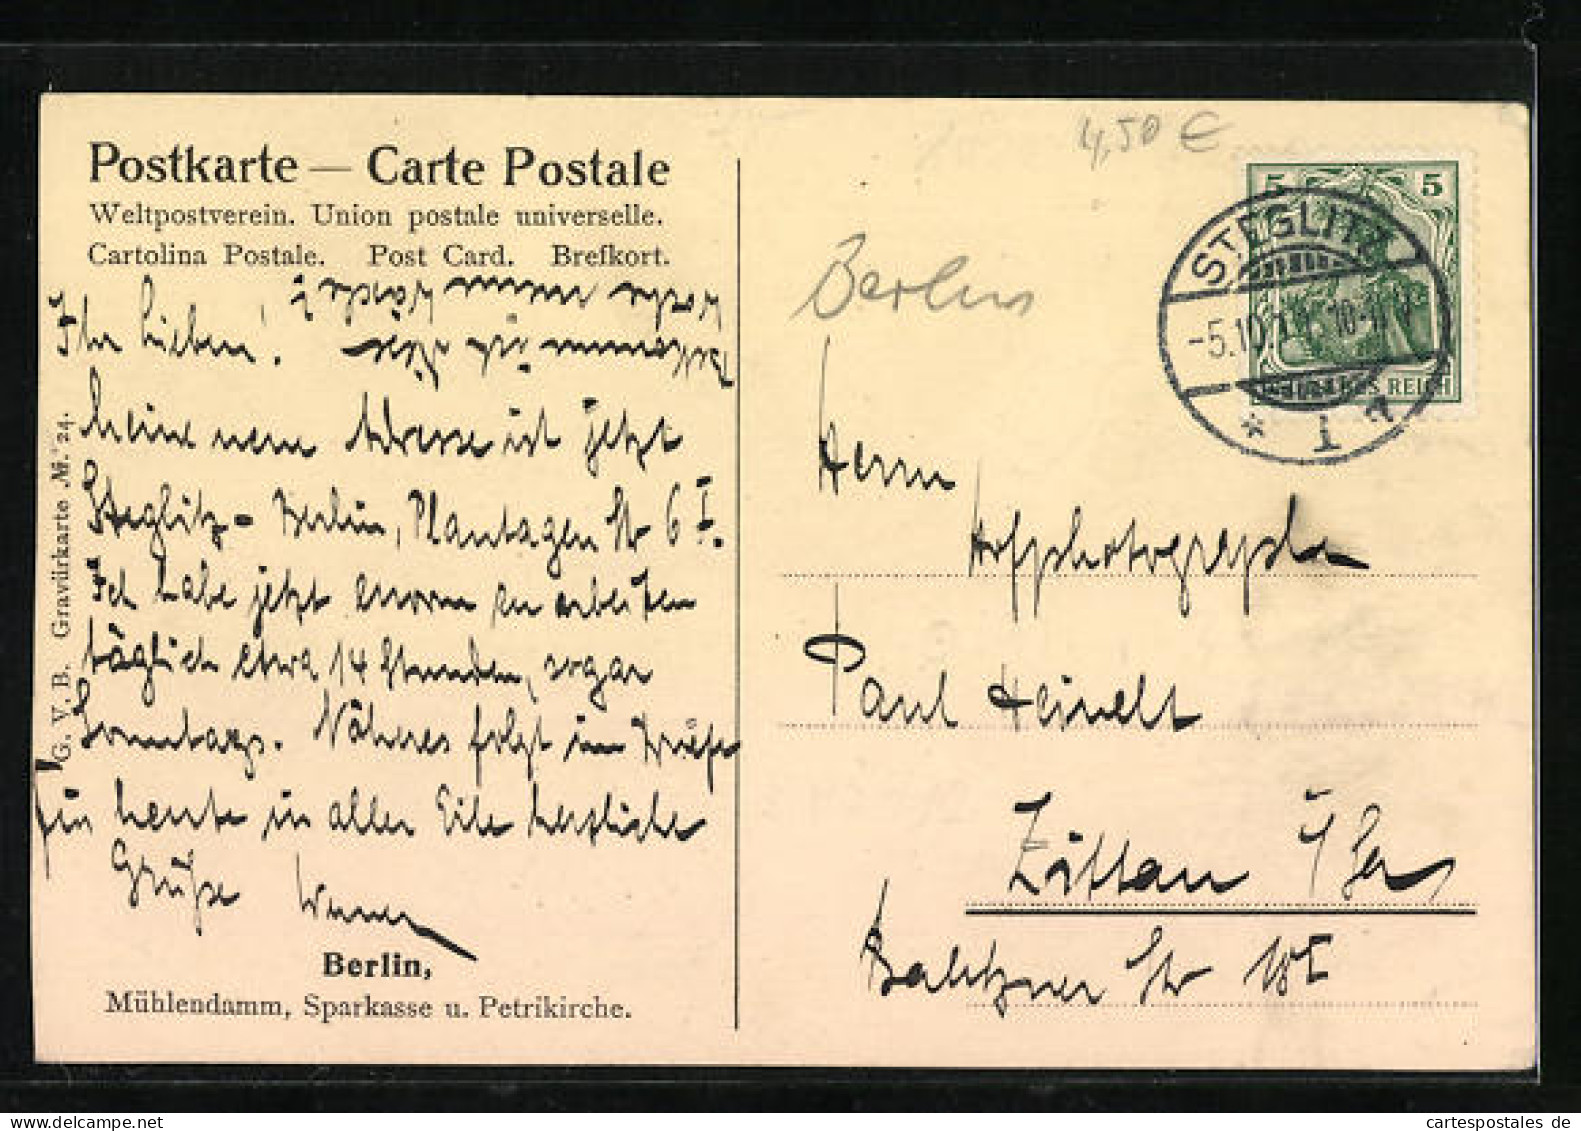 4,50 €
Postkarte — Carte Postale
Weltpostverein. Union postale universelle.
Cartolina Postale. Post Card. Brefkort.
Ihr Lieben!
Meine neue Adresse ist jetzt
Steglitz-Berlin, Plantagen Str 6 I.
Ich habe jetzt enorm zu arbeiten
täglich etwa 14 Stunden, sogar
Sonntags. Näheres folgt im Briefe
für heute in aller Eile herzliche
Grüße Werner
Berlin,
Mühlendamm, Sparkasse u. Petrikirche.
G. V. B. Gravürkarte Nr. 24.
5 5
REICH
STEGLITZ
-5.10. 10-11
* 1
Berlin
Herrn
Hofphotographen
Paul Heinelt
Zittau i/Sa
Str
cartespostales de